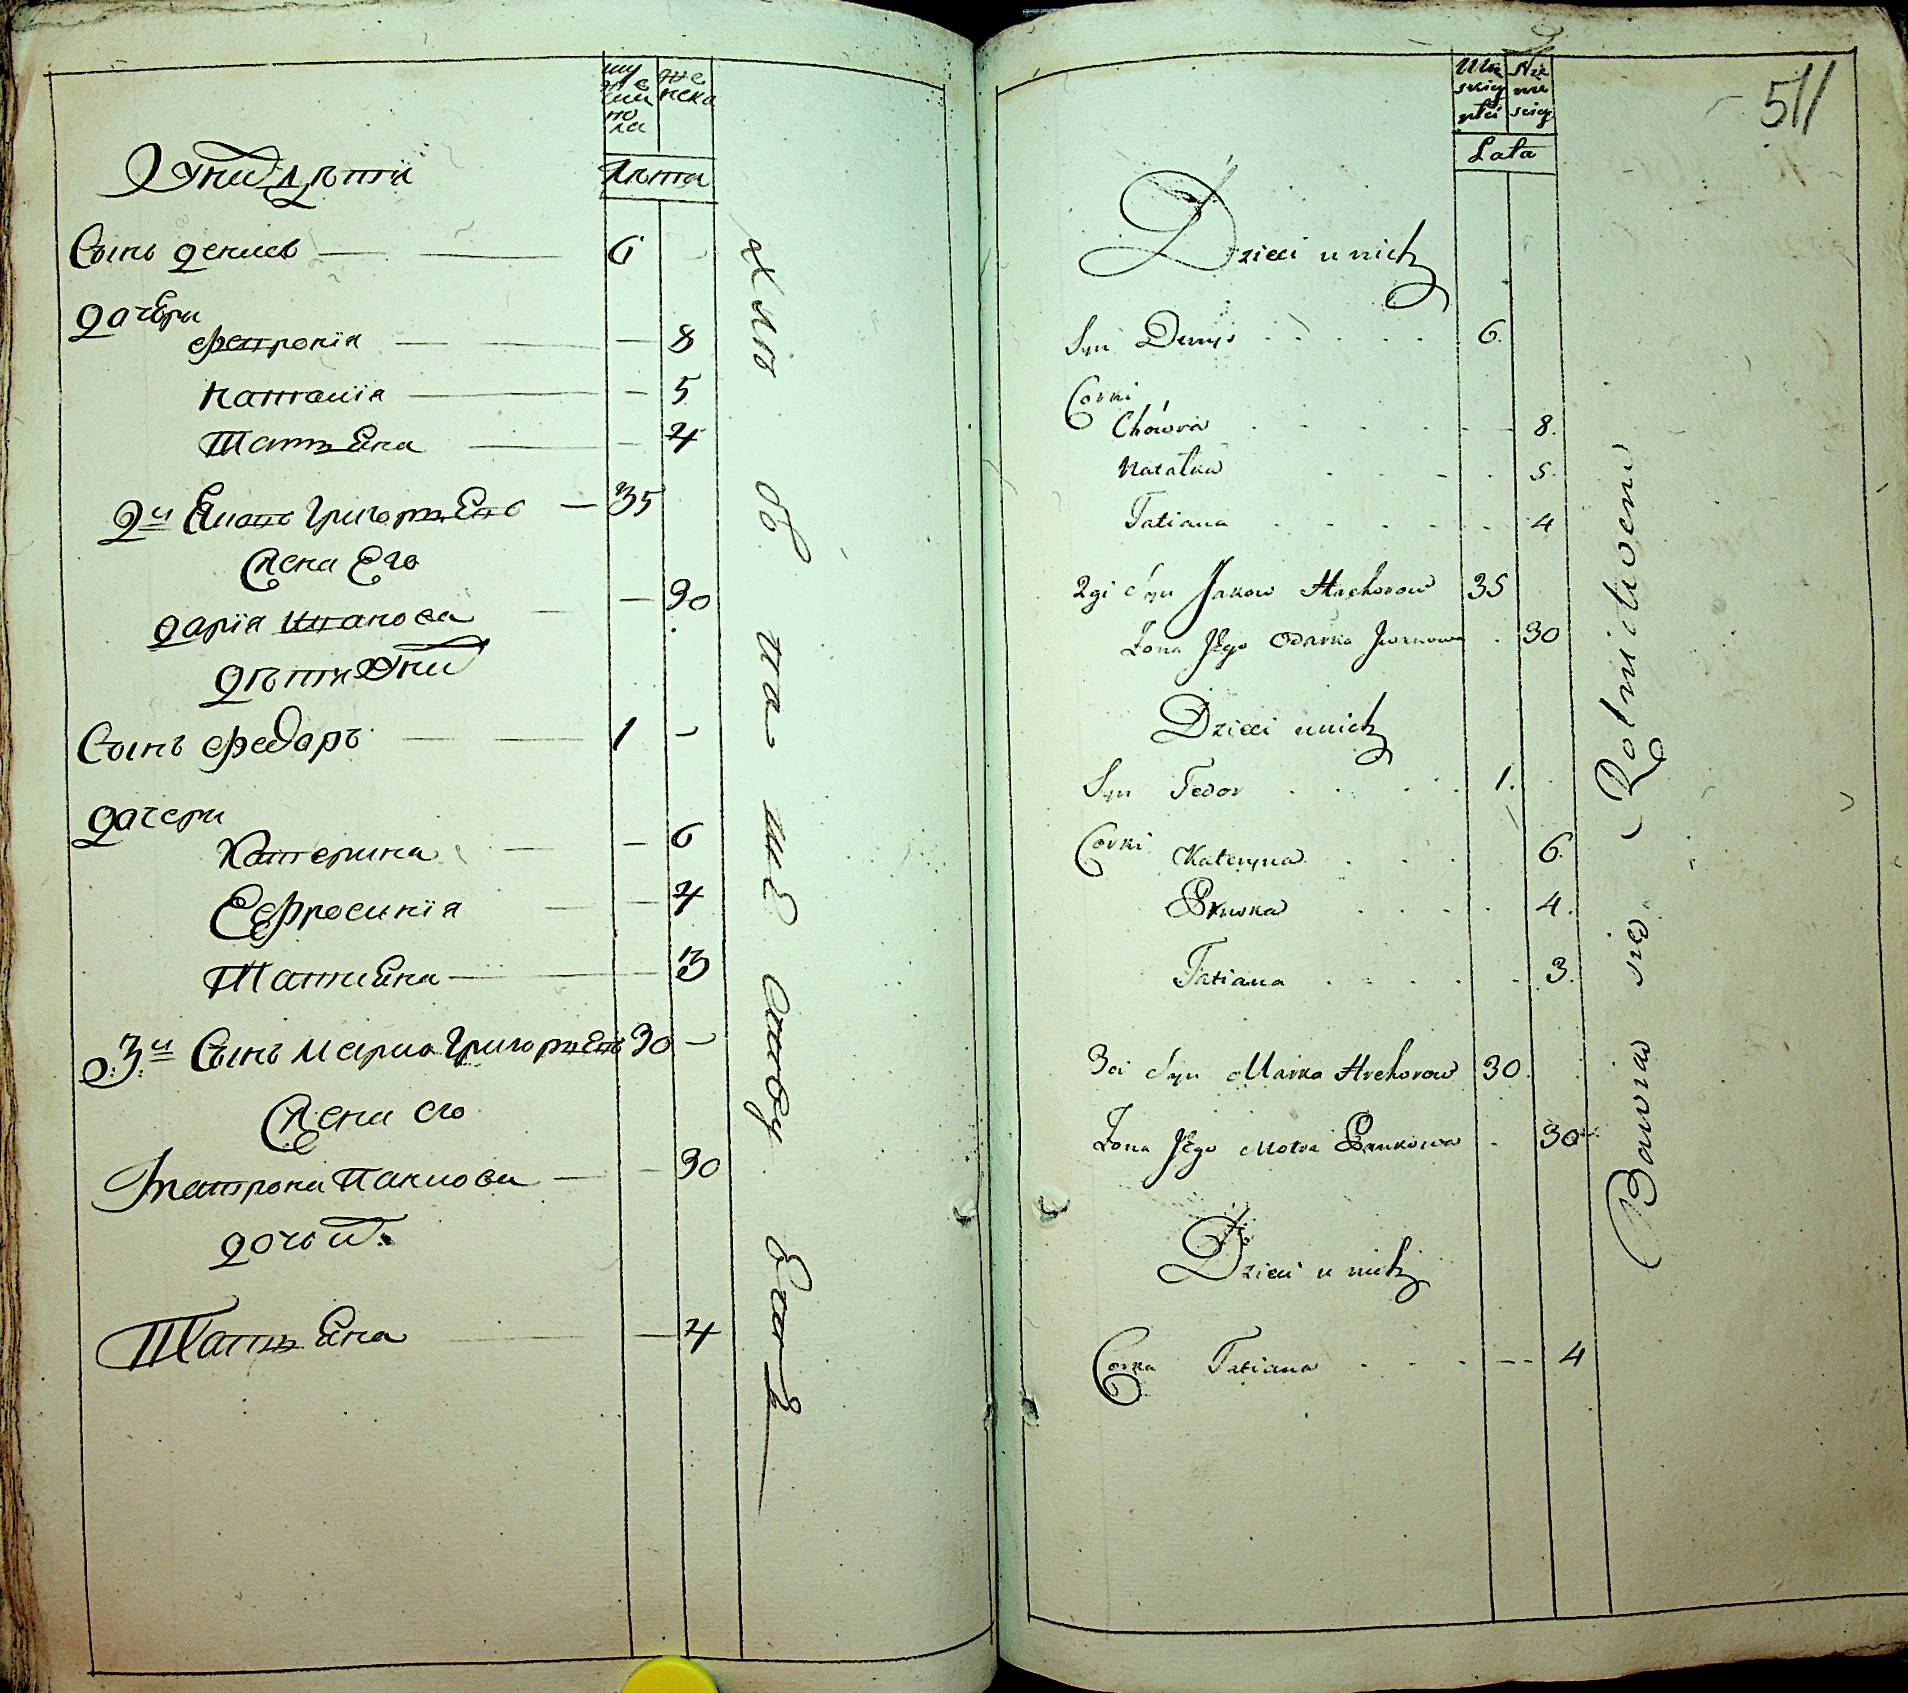 мужескаго пола
женска
Лѣта
У нихъ дѣти
Сынъ денисъ 6
дочери
Фетронія — 8
наталія — 5
Татъяна — 4
2й Яковъ Григорьевъ — 35
Жена Его
дарія Иванова — 30
дѣти У нихъ
Сынъ Федоръ 1 -
дочери
Катерина — 6
Ефросинія — 4
Татияна — 3
3й Сынъ Марко Григорьевъ 30 -
Жена его
Матрона Панкова — 30
дочь ихъ
Татъяна — 4
хлѣбопашествомъ
511
Męskiey płci
Lata
Dzieci u nich
Syn Denys 6.
Corki
Chówra 8.
Natalka 5.
Tatiana 4
2gi Syn Jakow Hrehorow 35
Żona Jego Odarka Iwanowa 30
Dzieci u nich
Syn Fedor 1.
Corki Kateryna 6.
Pryska 4.
Tatiana 3.
3ci Syn Marko Hrehorow 30.
Żona Jego Motra Pankowa 30
Dzieci u nich
Corka Tatiana 4
Bawią się Rolnictwem